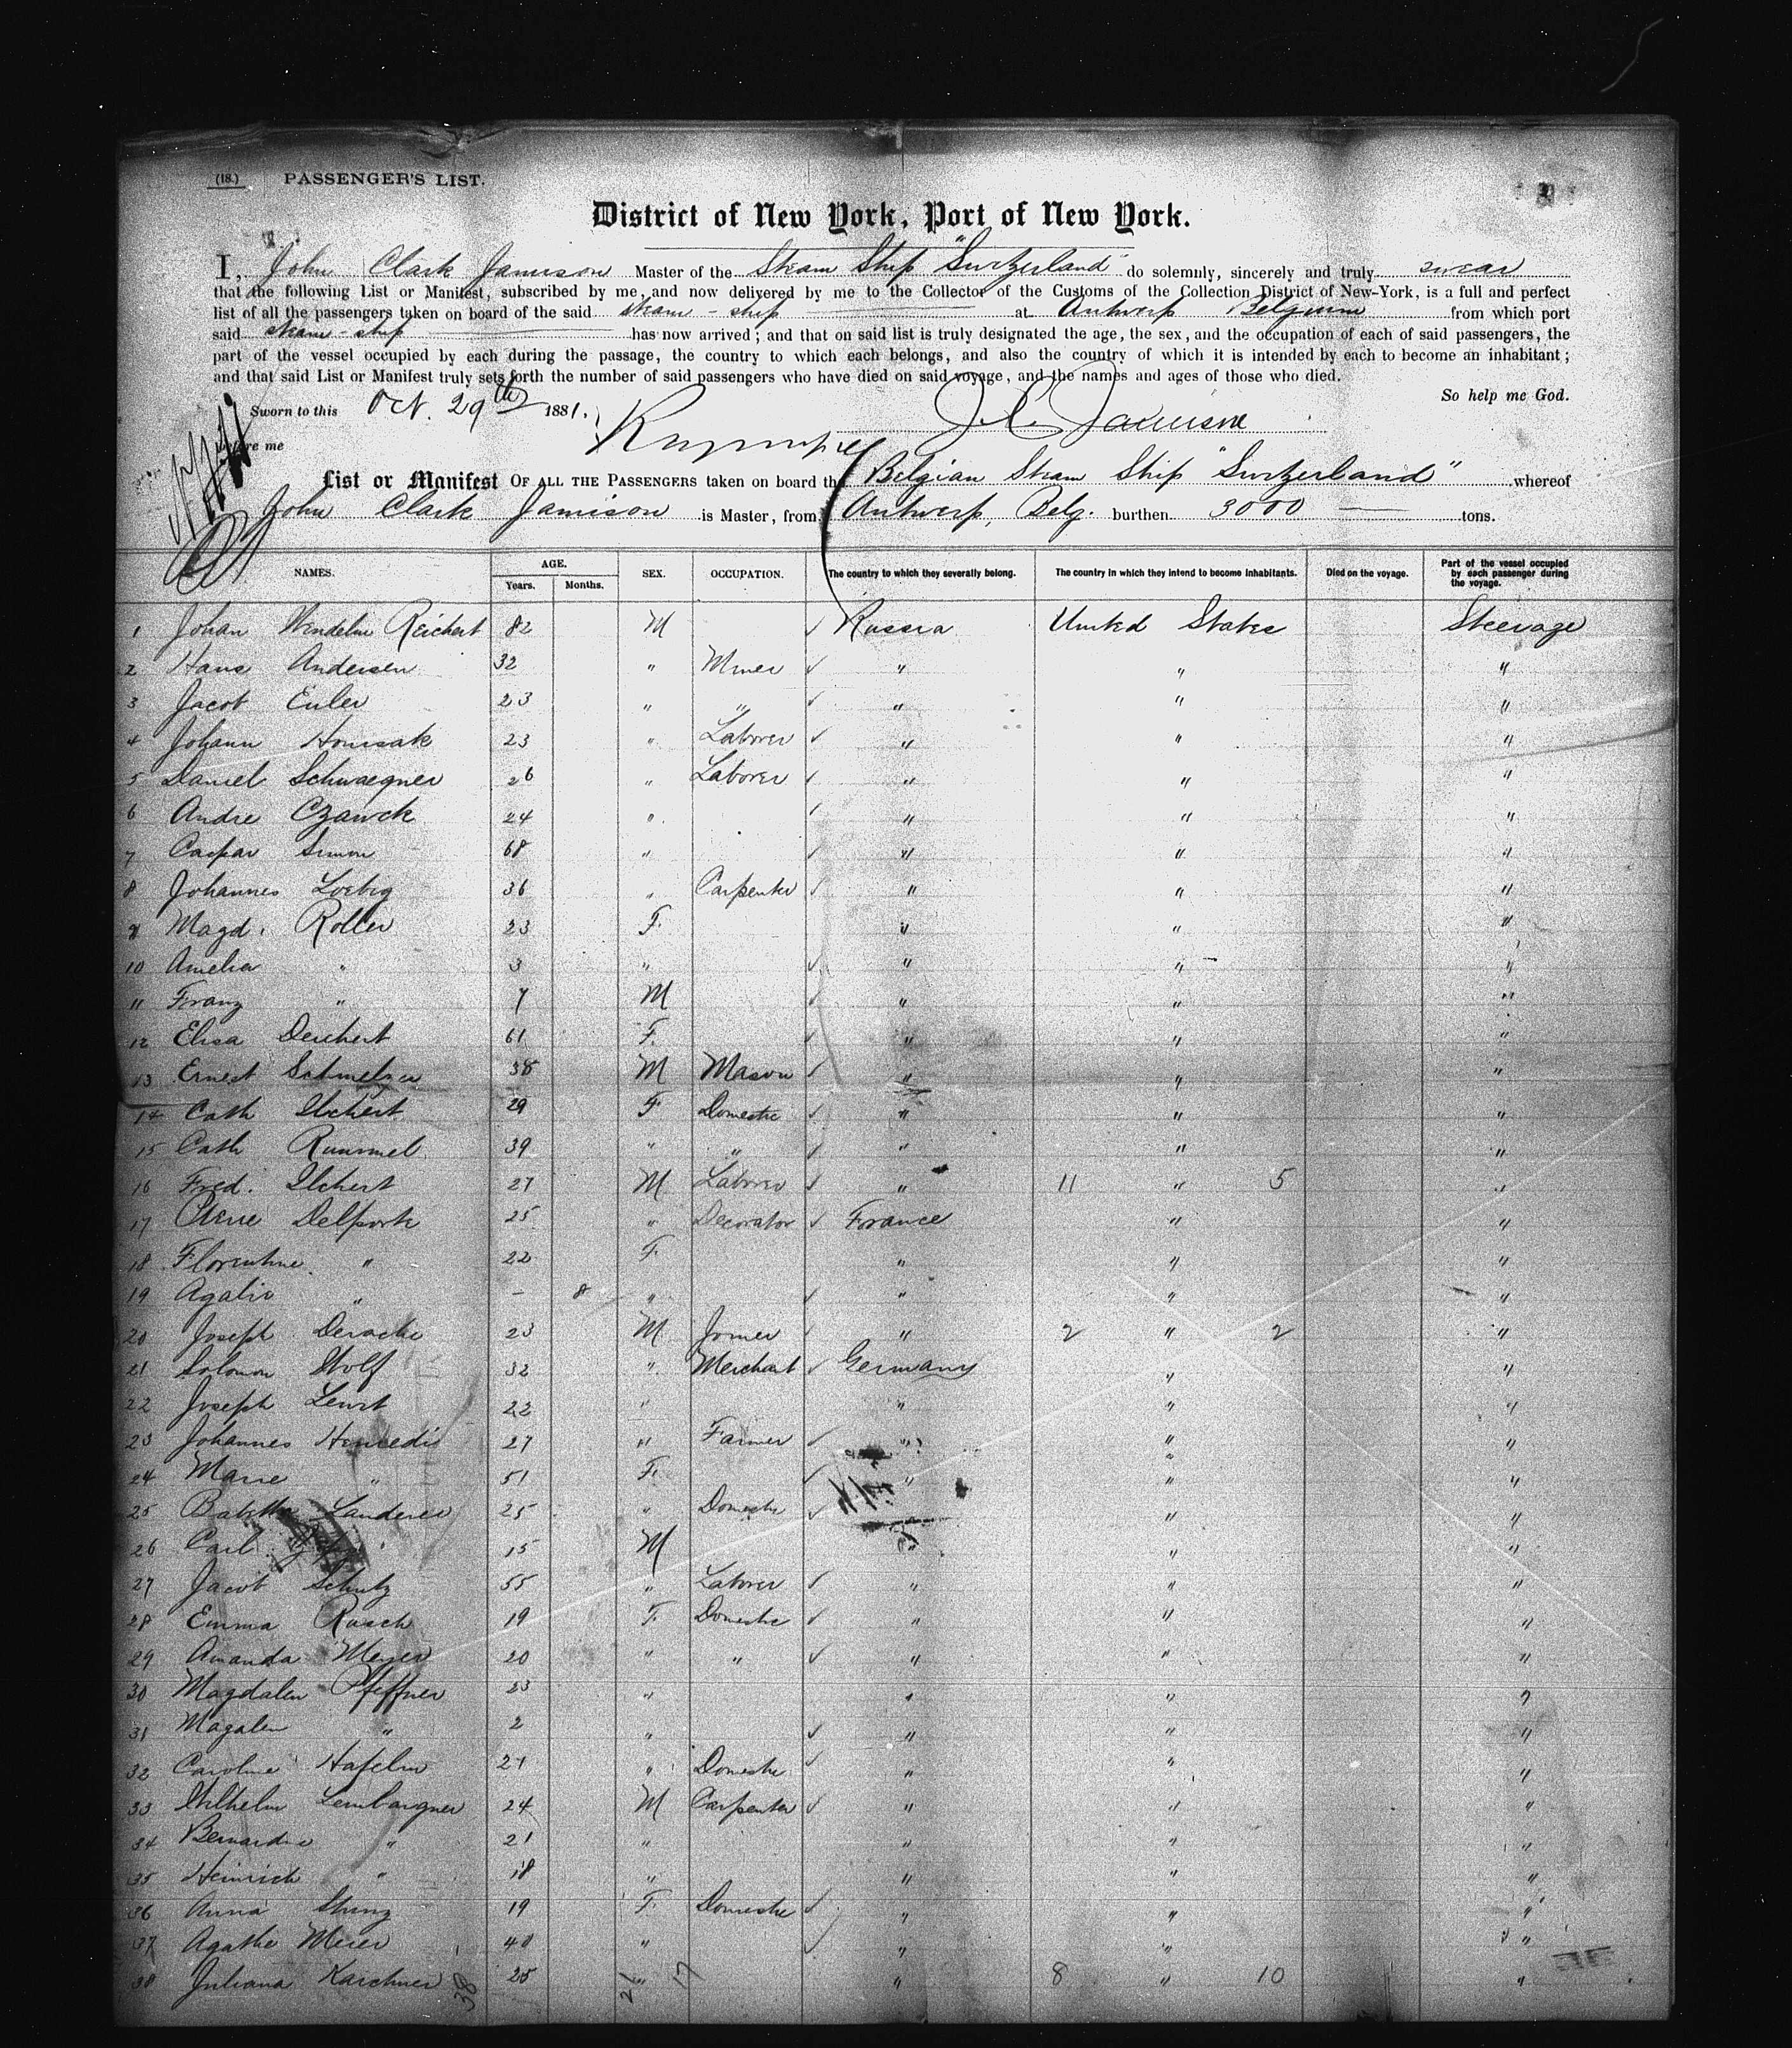 (18.) PASSENGER'S LIST.
District of New York, Port of New York.
I, John Clark Jamison Master of the Steam Ship "Switzerland" do solemnly, sincerely and truly swear
that the following List or Manifest, subscribed by me, and now delivered by me to the Collector of the Customs of the Collection District of New-York, is a full and perfect
list of all the passengers taken on board of the said steam-ship at Antwerp Belgium from which port
said steam-ship has now arrived; and that on said list is truly designated the age, the sex, and the occupation of each of said passengers, the
part of the vessel occupied by each during the passage, the country to which each belongs, and also the country of which it is intended by each to become an inhabitant;
and that said List or Manifest truly sets forth the number of said passengers who have died on said voyage, and the names and ages of those who died.
So help me God.
Sworn to this Oct. 29th 1881. J C Jamison
before me
List or Manifest OF ALL THE PASSENGERS taken on board the Belgian Steam Ship "Switzerland" whereof
John Clark Jamison is Master, from Antwerp, Belg. burthen 3000 tons.
NAMES. AGE. Years. Months. SEX. OCCUPATION. The country to which they severally belong. The country in which they intend to become inhabitants. Died on the voyage. Part of the vessel occupied by each passenger during the voyage.
1 Johan Wendelin Reichert 82 M Russia United States Steerage
2 Hans Andersen 32 " Miner " " "
3 Jacob Euler 23 " " " " "
4 Johann 23 " Laborer " " "
5 Daniel Schwaegner 26 " Laborer " " "
6 Andre Czawck 24 " " " "
7 Caspar Simon 68 " " " "
8 Johannes Loebig 36 " Carpenter " " "
9 Magd. Roller 23 F. " " "
10 Amelia " 3 " " " "
11 Franz " 7 M " " "
12 Elisa Deichert 61 F. " " "
13 Ernest Schmelzer 38 M Mason " " "
14 Cath Ilchert 29 F Domestic " " "
15 Cath Rummel 39 " " " " "
16 Fred. Ilchert 27 M Laborer " 11 " 5 "
17 Delporte 25 " Decorator France " "
18 Florentine " 22 F. " " "
19 " - 8 " " " "
20 Joseph Deroche 23 M Joiner " 2 " 2 "
21 Solomon Wolf 32 " Merchant Germany " "
22 Joseph 22 " " " "
23 Johannes 27 " Farmer " " "
24 Marie " 51 F. " " "
25 Babette Landerer 25 " Domestic " "
26 Carl " 15 M " " "
27 Jacob Schutz 55 " Laborer " " "
28 Emma Rasch 19 F. Domestic " " "
29 Amanda Meyer 20 " " " " "
30 Magdalen Pfeffner 23 " " " "
31 Magalen " 2 " " " "
32 Caroline Hafelin 21 " Domestic " " "
33 Wilhelm Lembargner 24 M Carpenter " " "
34 " 21 " " " "
35 Heinrich " 18 " " " "
36 Anna 19 F. Domestic " " "
37 Agathe Meier 40 " " " "
38 Juliana Karchner 25 " " 8 " 10 "
38 21 17